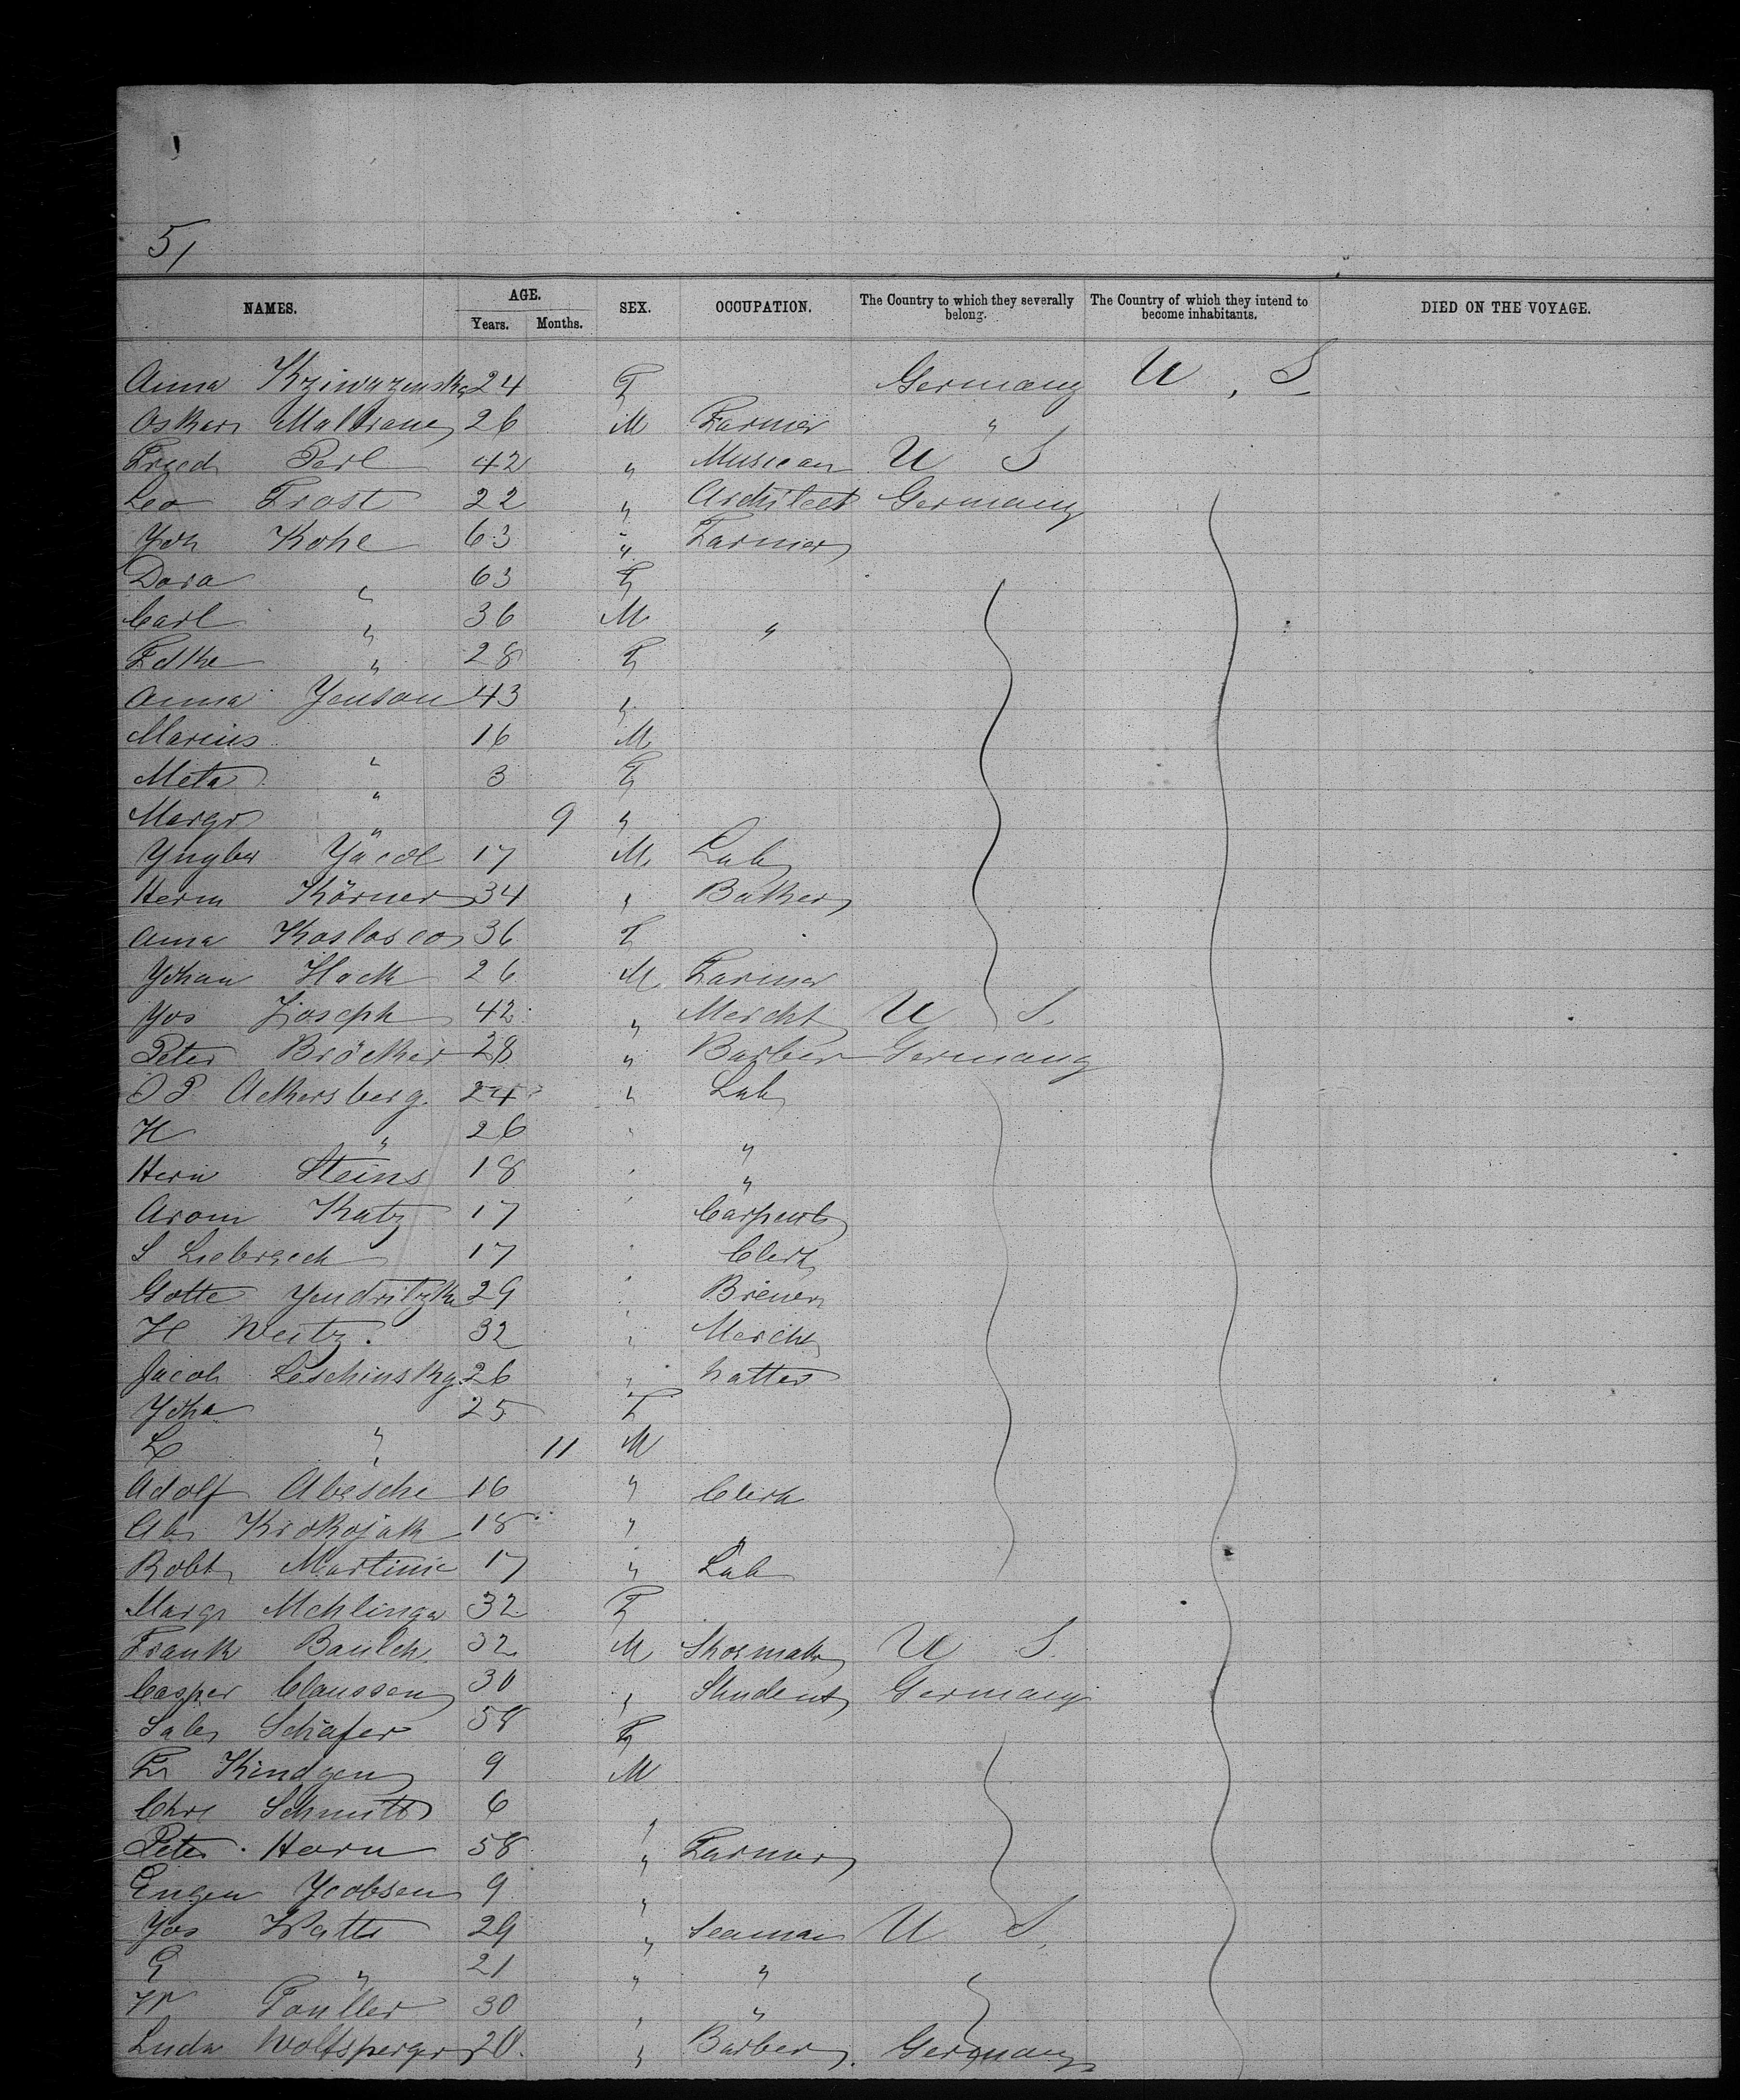 51
NAMES. AGE. SEX. OCCUPATION. The Country to which they severally belong. The Country of which they intend to become inhabitants. DIED ON THE VOYAGE.
Years. Months.
Anna 24 F Germany U. S
Oskar 26 M Farmer "
Fried Perl 42 " Musecan U S
Leo Frost 22 " Architect Germany
Yoh Kohe 63 " Farmer
Dora " 63 F
Carl " 36 M "
Edke " 28 F
Anna Yenson 43 "
Marius " 16 M
Meta " 3 F
Margr " 9 "
Yngber Yacob 17 M Lab
Herm Körner 34 " Baker
Anna 36 F
Yohan Hack 26 M Farmer
Yos Joseph 42 " Mercht U S.
Peter Bröcker 28 " Barber Germany
O P Ackersberg. 24 " Lab
H " 26 " "
Hein Steins 18 " "
Arom Katz 17 " Carpent
S 17 " Clerk
Gotte Yendritzka 29 " Brewer
H Weitz. 32 " Mercht
Jacob Leschinsky 26 " hatter
Yoha " 25 F
L " 11 M
Adolf Abesche 16 " Clerk
Ab Krokojak 18 " "
Robt Martinie 17 " Lab
Margr Mehlinga 32 F
Frank 32 M Shoemakr U S.
Casper Claussen 30 " Student Germany
Schäfer 58 F
Fr Kindgen 9 M
Chre Schmitt 6 "
Peter Horn 58 " Farmer
Eugen Ycobsen 9 "
Yos Watts 29 " Seaman U S.
G " 21 " "
W 30 " "
Luda Wolfsperger 20. " Barber. Germany